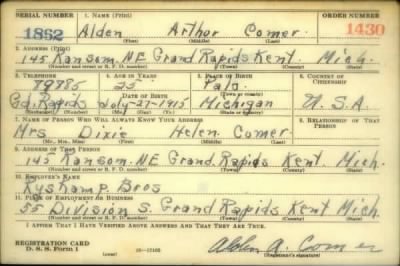 SERIAL NUMBER 1. NAME (Print) ORDER NUMBER
1862 Alden Arthur Comer 1430
(First) (Middle) (Last)
2. ADDRESS (Print)
145 Ransom NE Grand Rapids Kent Mich.
(Number and street or R. F. D. number) (Town) (County) (State)
3. TELEPHONE 4. AGE IN YEARS 5. PLACE OF BIRTH 6. COUNTRY OF CITIZENSHIP
79785 25 Palo
DATE OF BIRTH (Town or county)
Gd. Rapids July-27-1915 Michigan U.S.A.
(Exchange) (Number) (Mo.) (Day) (Yr.) (State or country)
7. NAME OF PERSON WHO WILL ALWAYS KNOW YOUR ADDRESS 8. RELATIONSHIP OF THAT PERSON
Mrs Dixie Helen Comer
(Mr., Mrs., Miss) (First) (Middle) (Last)
9. ADDRESS OF THAT PERSON
145 Ransom NE Grand Rapids Kent Mich.
(Number and street or R. F. D. number) (Town) (County) (State)
10. EMPLOYER'S NAME
Ryskamp Bros
11. PLACE OF EMPLOYMENT OR BUSINESS
55 Division S. Grand Rapids Kent Mich
(Number and street or R. F. D. number) (Town) (County) (State)
I AFFIRM THAT I HAVE VERIFIED ABOVE ANSWERS AND THAT THEY ARE TRUE.
REGISTRATION CARD
D. S. S. Form 1 (over) Alden A. Comer
(Registrant's signature)